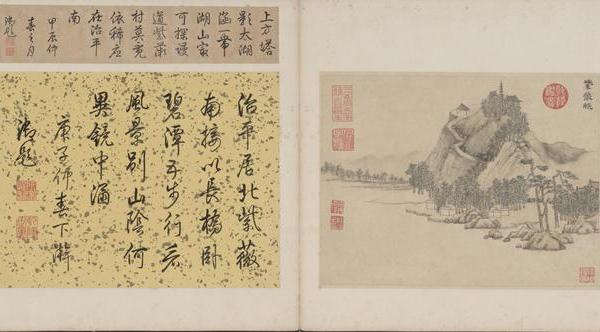 紫薇邨
上方塔
影太湖
涵一帶
湖山家
可探謾
道紫薇
村莫究
依稀應
在治平
南
甲辰仲
春之月
御題
治平居北紫薇
南接以長橋卧
碧潭五步行看
風景別山陰何
異鏡中涵
庚子仲春下澣
御題